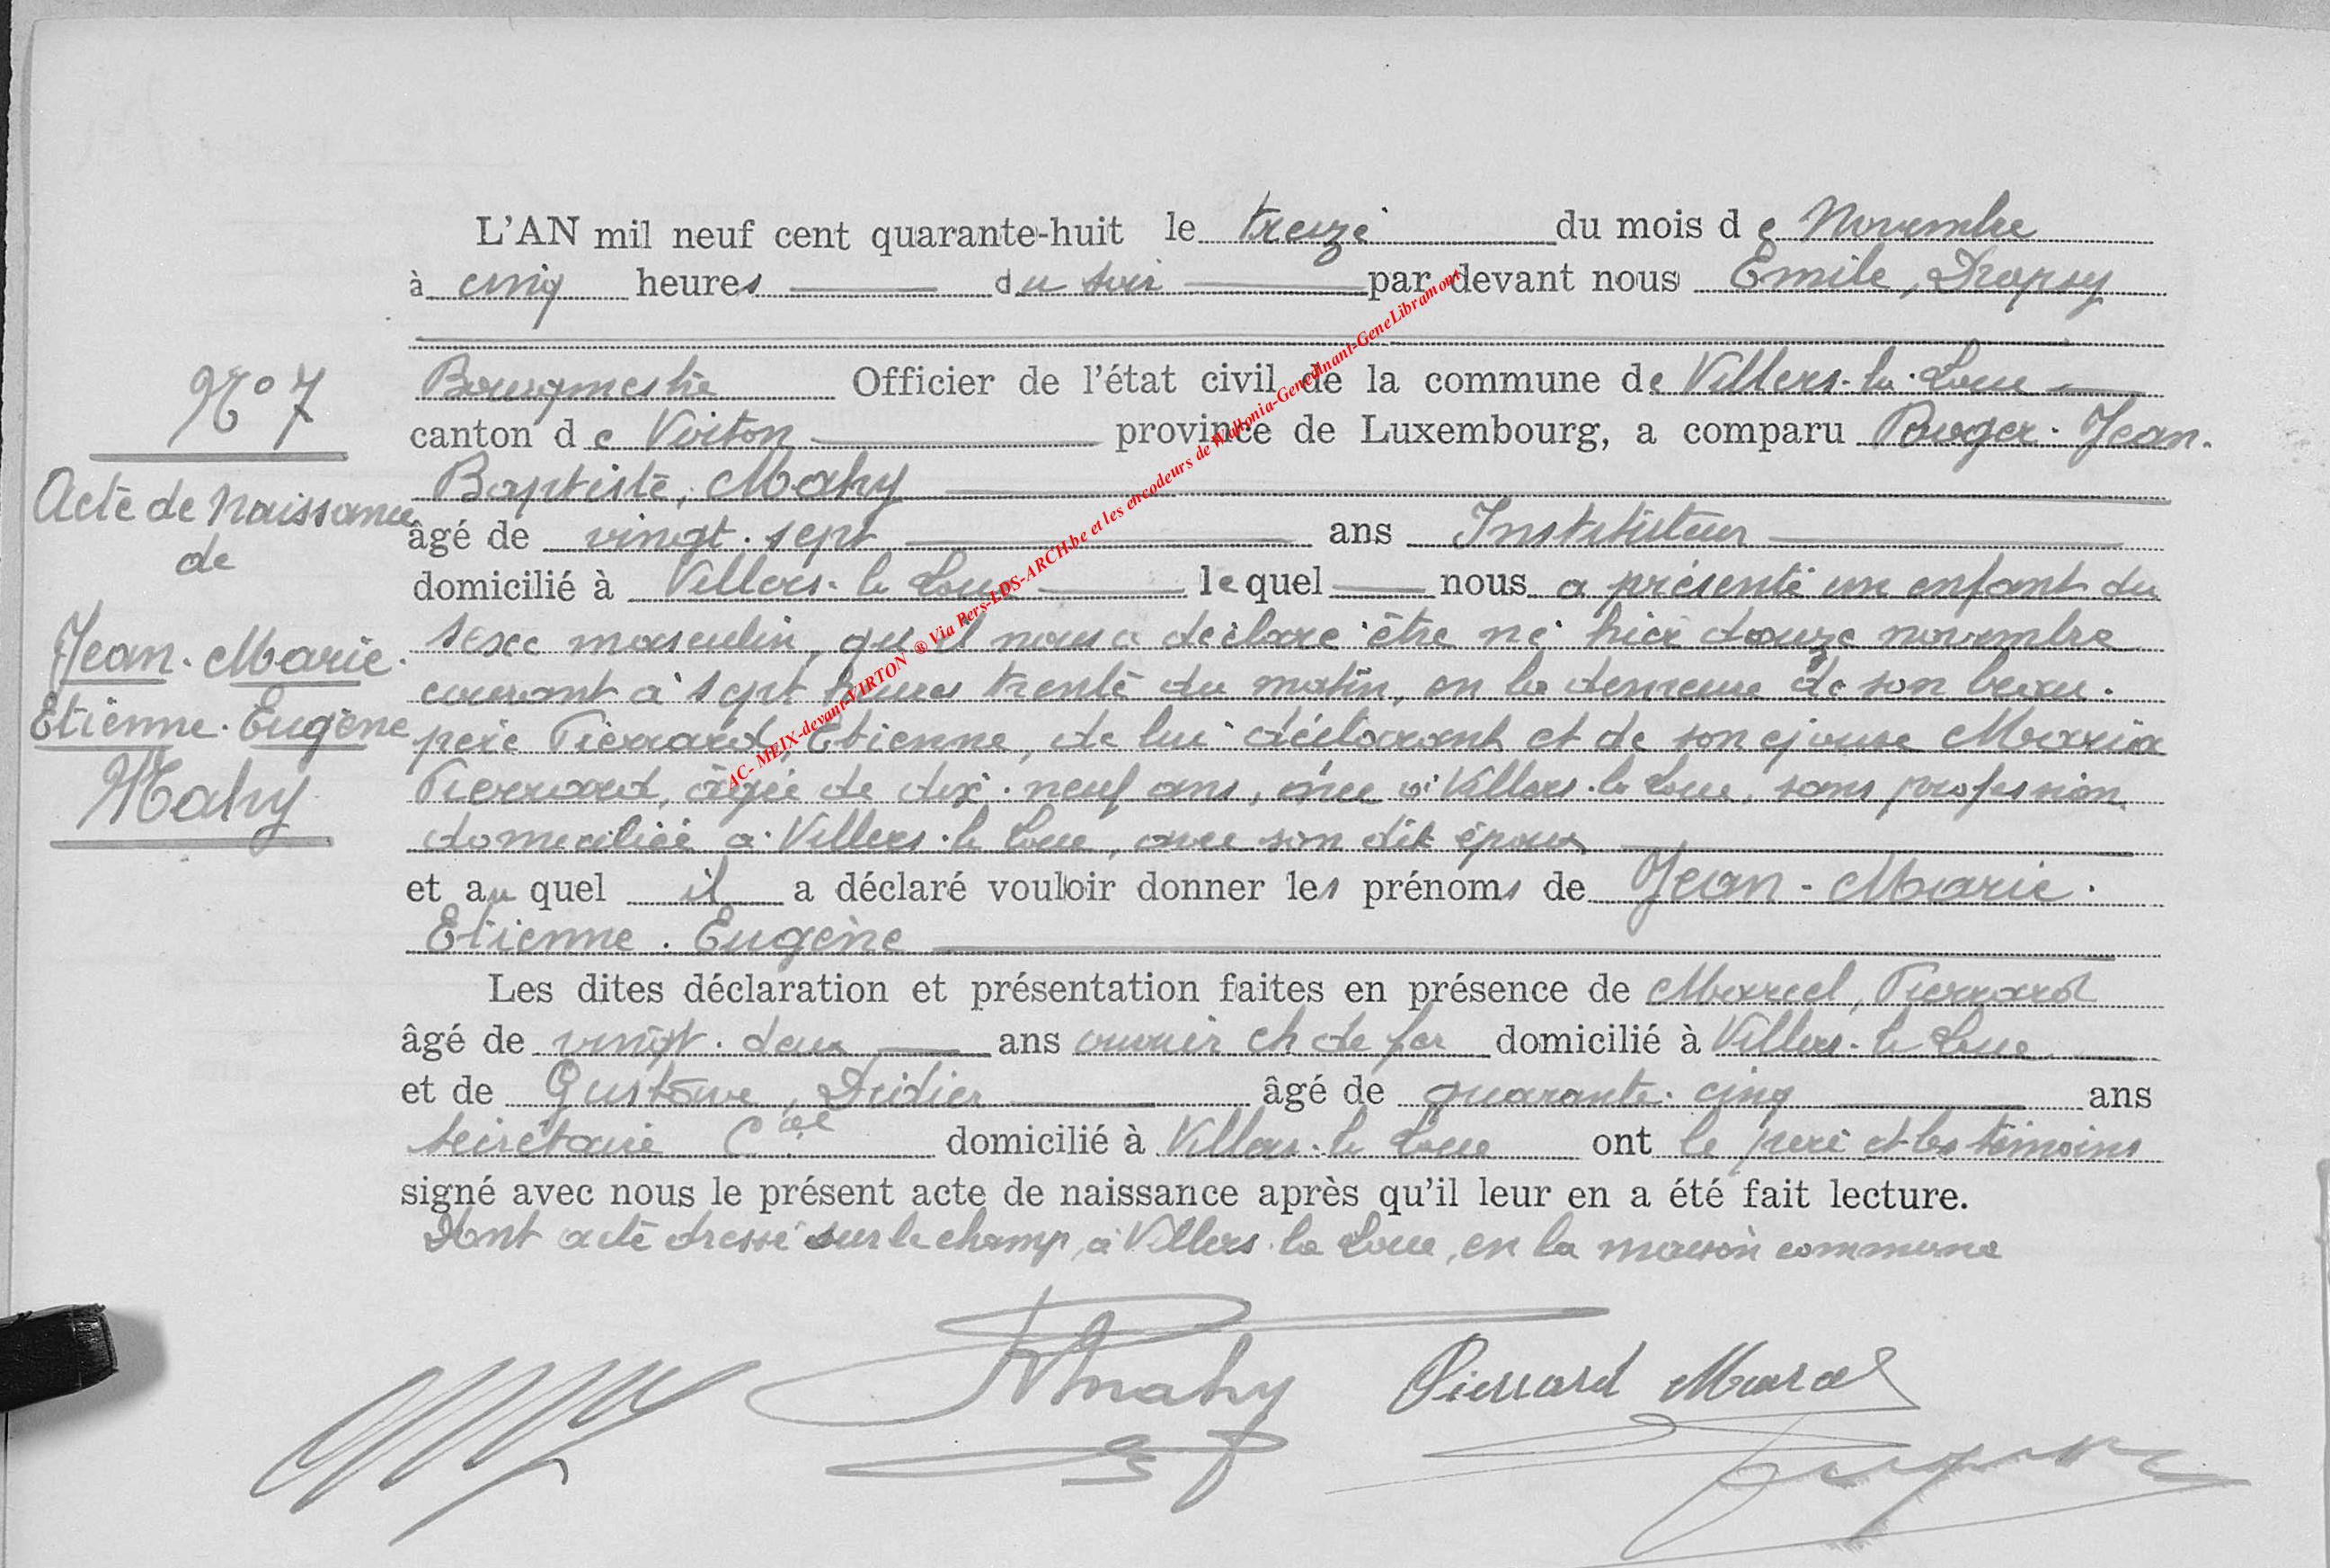 L'AN mil neuf cent quarante-huit le treize du mois de Novembre
à cinq heures du soir par devant nous Emile, Dropsy
Bourgmestre Officier de l'état civil de la commune de Villers-la-Loue
canton de Virton province de Luxembourg, a comparu Roger-Jean-
Baptiste, Mahy
âgé de vingt-sept ans Instituteur
domicilié à Villers-la Loue lequel nous a présenté un enfant du
sexe masculin, qu'il nous a déclaré être né hier douze novembre
courant à sept heures trente du matin, en la demeure de son beau-
père Pierrard, Etienne, de lui déclarant et de son épouse Maria
Pierrard, âgée de dix-neuf ans, née à Villers-la Loue, sans profession
domiciliée à Villers-la Loue, avec son dit époux
et auquel il a déclaré vouloir donner les prénoms de Jean-Marie-
Etienne-Eugène
Les dites déclaration et présentation faites en présence de Marcel, Pierrard
âgé de vingt-deux ans ouvrier ch de fer domicilié à Villers-la Loue
et de Gustave, Didier âgé de quarante-cinq ans
secrétaire Cal domicilié à Villers-la Loue ont le père et les témoins
signé avec nous le présent acte de naissance après qu'il leur en a été fait lecture.
Dont acte dressé sur le champ, à Villers-la Loue, en la maison commune
N° 7
Acte de Naissance
de
Jean-Marie-
Etienne-Eugène
Mahy
Mahy
Pierrard Marcel
AC- MEIX-devant-VIRTON ® Via Pers-LDS-ARCH.be et les encodeurs de Wallonia-Genedinant-GeneLibramont